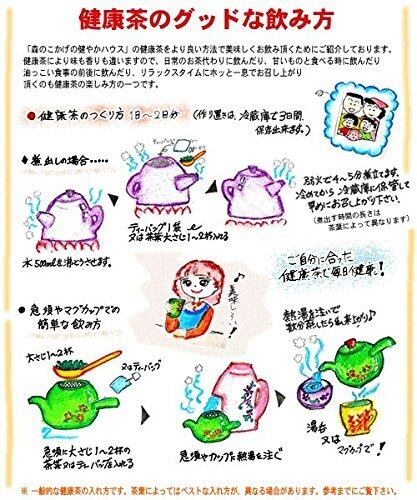 健康茶のグッドな飲み方
「森のこかげの健やかハウス」の健康茶をより良い方法で美味しくお飲み頂くためにご紹介しております。
健康茶により味も香りも違いますので、日常のお茶代わりに飲んだり、甘いものと食べる時に飲んだり
油っこい食事の前後に飲んだり、リラックスタイムにホッと一息でお召し上がり
頂くのも健康茶の楽しみ方の一つです。
●健康茶のつくり方 1日~2日分
(作り置きは、冷蔵庫で3日間、
保存出来ます。)
◆煮出しの場合・・・・・
ティーバッグ
水500mlを沸とうさせます。
ティーバッグ1袋
又は茶葉大さじ1~2杯入れる
弱火で4~5分煮立てます。
冷めてから冷蔵庫に保管して
早めにお召し上がり下さい。
(煮出す時間の長さは
茶葉によって異なります)
ご自分に合った
健康茶で毎日健康!
♪美味しい!
◆急須やマグカップでの
簡単な飲み方
大さじ1~2杯
又はティーバッグ
急須に大さじ1~2杯の
茶葉又はティーバッグを入れる
急須やカップに熱湯を注ぐ
熱湯を注いで
数分蒸したら出来上がり♪
湯呑
又は
マグカップで!
※ 一般的な健康茶の入れ方です。茶葉によってはベストな入れ方が、異なる場合があります。参考までにご覧下さい。